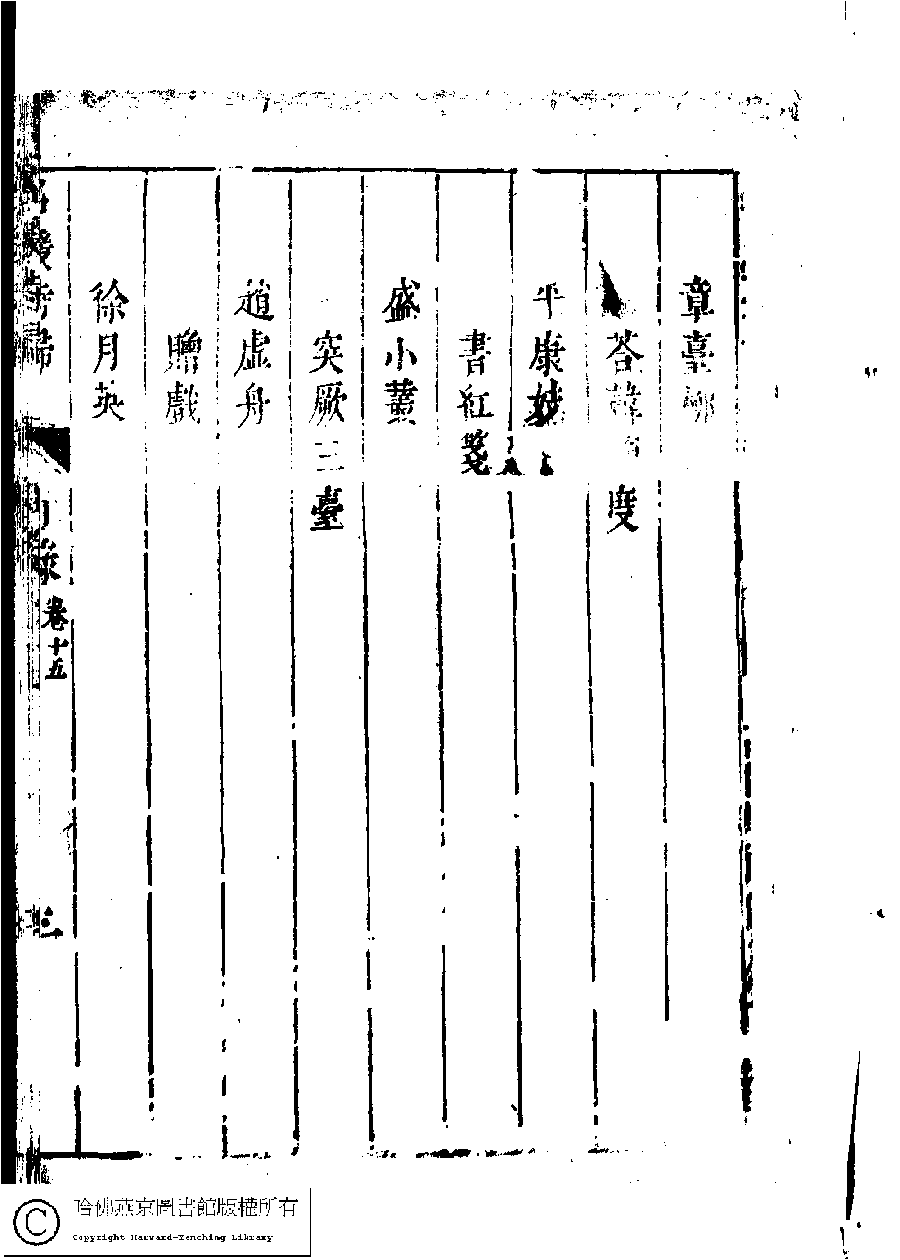 章臺柳
答韓 度
平康妓
書紅箋
盛小藂
突厥三臺
趙虛舟
贈戲
徐月英
名媛詩歸
目錄
卷十五
三
哈佛燕京圖書館版權所有
Copyright Harvard-Yenching Library